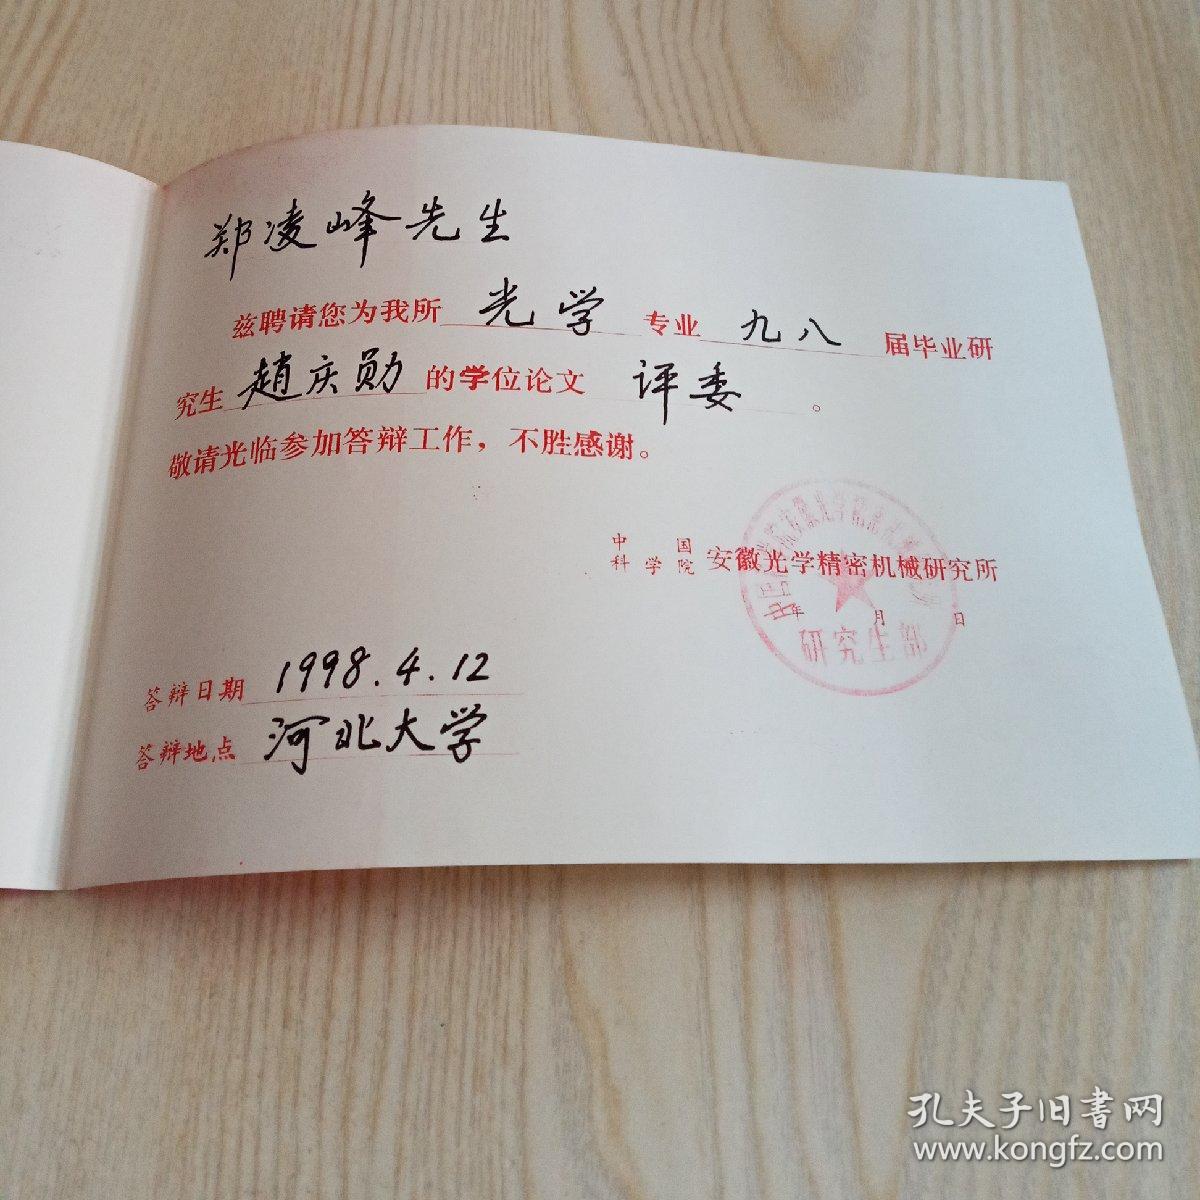 郑凌峰先生
兹聘请您为我所 光学 专业 九八 届毕业研
究生 趙庆勋 的学位论文 评委 。
敬请光临参加答辩工作，不胜感谢。
中国科学院 安徽光学精密机械研究所
年 月 日
研究生部
答辩日期 1998.4.12
答辩地点 河北大学
孔夫子旧書网
www.kongfz.com